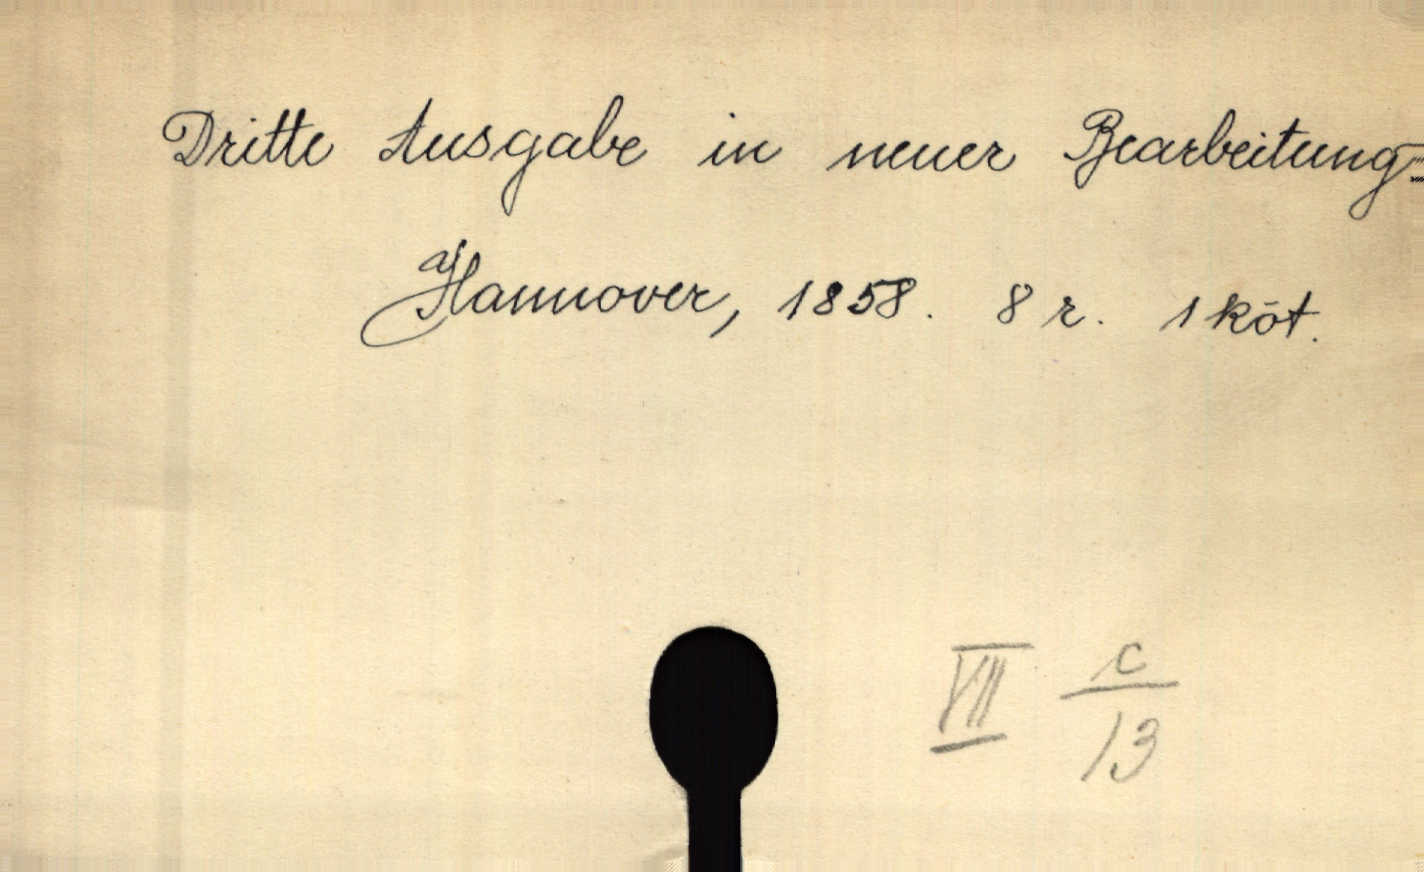 Dritte Ausgabe in neuer Bearbeitung=
Hannover, 1858. 8 r. 1 köt.
VII c/13